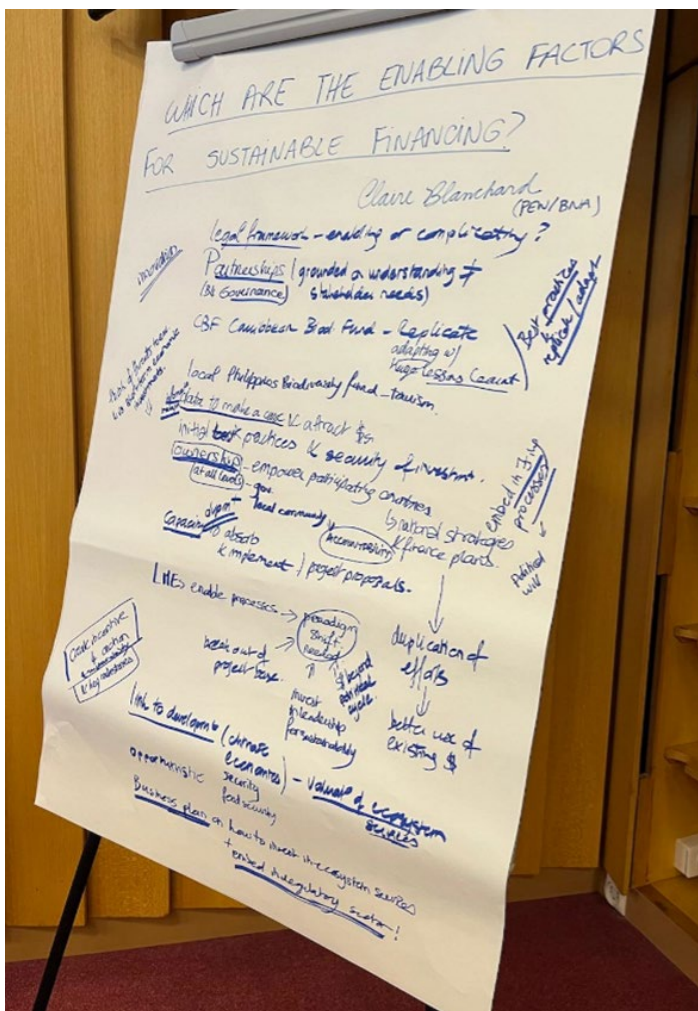 WHICH ARE THE ENABLING FACTORS
FOR SUSTAINABLE FINANCING?
Claire Blanchard
(PEW/BNA)
legal framework - enabling or complicating?
innovation
Partnerships (grounded on understanding ≠
(B4 Governance) stakeholder needs)
Best practices
& replicate/adapt
CBF Caribbean Biod Fund - Replicate
adapting w/
lessons learnt
local Philippines Biodiversity fund - tourism.
data to make a case & attract $$
initial practices & security of investmt.
ownership - empower participating countries
at all levels - gov.
local community
national strategies
& finance plans.
embed in
processes
Political
will
Capacity dvpmt
to absorb
& implement / project proposals.
Accountability
LMEs enable processes → paradigm
shift
needed
break out of
project base.
beyond
political
cycle
invest
in leadership
for sustainability
duplication of
efforts
better use of
existing $
Create incentive
& key
link to developmt (climate
economies
security
food security) - value of ecosystem
services
opportunistic
Business plan on how to invest in ecosystem services
+ embed in regulatory sector!